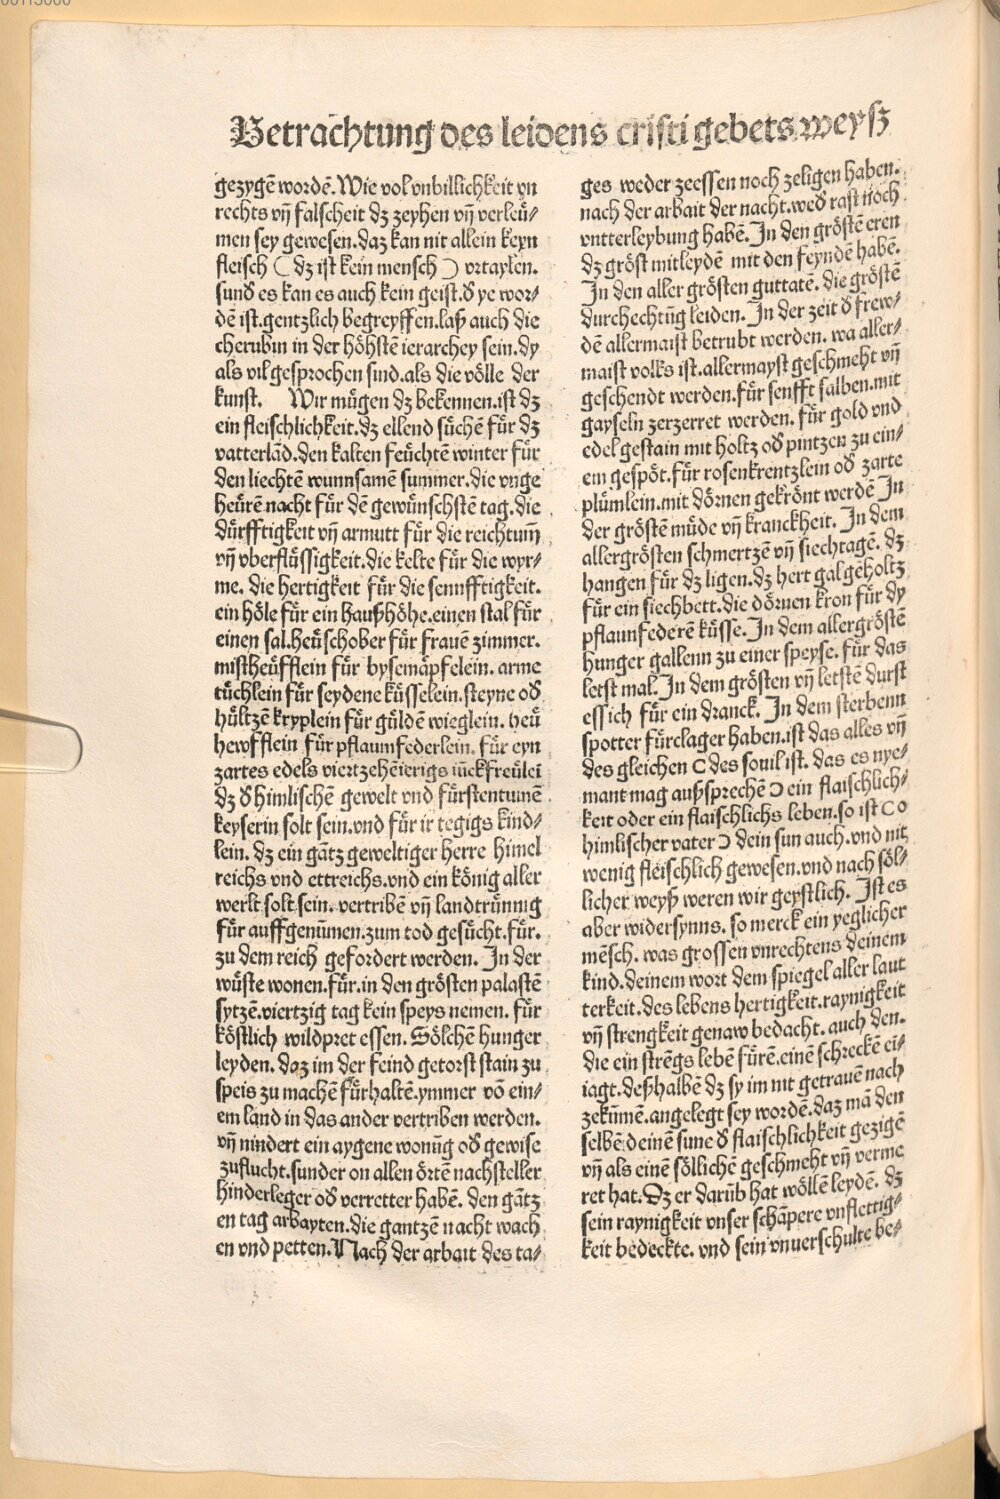 Betrachtung des leidens cristi gebets weyß
gezygē wordē. Wie vol vnbillichkeit vn
rechts vn̄ falscheit dz zeyhen vn̄ verleü⸗
men sey gewesen. daz kan nit allein keyn
fleisch (dz ist kein mensch) vrtaylen.
sund es kan es auch kein geist. d ye wor⸗
dē ist. gentzlich begreyffen. laß auch die
cherubin in der höhstē ierarchey sein. dy
als vil gesprochen sind. als die völle der
kunst. Wir mügen dz bekennen. ist dz
ein fleischlichkeit. dz ellend süchē für dz
vatterlād. den kalten feüchtē winter für
den liechtē wunnsamē summer. die vnge
heürē nacht für dē gewünschstē tag. die
dürfftigkeit vn̄ armutt für die reichtum̄
vn̄ vberflüssigkeit. die kelte für die wyr⸗
me. die hertigkeit für die sennfftigkeit.
ein höle für ein haußhöhe. einen stal für
einen sal. heüschober für frauē zimmer.
mistheüfflein für bysemäpfelein. arme
tüchlein für seydene küsselein. steyne od
hültzē kryplein für güldē wieglein. heü
hewfflein für pflaumfederlein. für eyn
zartes edels viertzehēierigs iūckfreülei
dz d himlischē gewelt vnd fürstentumē
keyserin solt sein. vnd für ir tegigs kind⸗
lein. dz ein gātz geweltiger herre himel
reichs vnd ettreichs. vnd ein könig aller
werlt solt sein. vertribē vn̄ landtrünnig
für auffgenūmen. zum tod gesücht. für.
zu dem reich gefordert werden. In der
wüste wonen. für. in den grösten palastē
sytzē. viertzig tag kein speys nemen. für
köstlich wildpret essen. Sölchē hunger
leyden. daz im der feind getorst stain zu
speis zu machē fürhaltē. ymmer vō ein⸗
em land in das ander vertriben werden.
vn̄ nindert ein aygene wonūg od gewise
zuflucht. sunder on allen örtē nachsteller
hinderleger od verretter habē. den gātz
en tag arbayten. die gantzē nacht wach
en vnd petten. Nach der arbait des ta⸗
ges weder zeessen noch zeligen haben.
nach der arbait der nacht. wed rast noch
vntterleybung habē. In den gröstē eren
dz gröst mitleydē mit den feyndē habē.
In den aller grösten guttatē. die gröstē
durchechtūg leiden. In der zeit d frew⸗
dē allermaist betrubt werden. wa aller⸗
maist volks ist. allermayst geschmeht vn̄
geschendt werden. für senfft salben. mit
gayseln zerzerret werden. für gold vnd
edel gestain mit holtz od pintzen zu ein⸗
em gespöt. für rosenkrentzlein od zarte
plümlein. mit dörnen gekrönt werdē In
der gröstē müde vn̄ kranckheit. In dem
allergrösten schmertzē vn̄ siechtagē. dz
hangen für dz ligen. dz hert galgēholtz
für ein siechbett. die dörnen kron für dy
pflaunfederē küsse. In dem allergröstē
hunger gallenn zu einer speyse. für das
letst mal. In dem grösten vn̄ letstē durst
essich für ein dranck. In dem sterbenn
spotter fürclager haben. ist das alles vn̄
des gleichen (des souil ist. das es nye⸗
mant mag außsprechē) ein flaischlich⸗
keit oder ein flaischlichs leben. so ist (o
himlischer vater) dein sun auch. vnd nit
wenig fleischlich gewesen. vnd nach söl⸗
licher weyß weren wir geystlich. Ist es
aber widersynns. so merck ein yeglicher
mēsch. was grossen vnrechtens deinem
kind. deinem wort dem spiegel aller laut
terkeit. des lebens hertigkeit. raynigkeit
vn̄ strengkeit genaw bedacht. auch den.
die ein strēgs lebē fürē. einē schreckē ei⸗
iagt. deßhalbē dz sy im nit getrauē nach
zekūmē. angelegt sey wordē. daz mā den
selbē deinē sune d flaischlichkeit gezigē
vn̄ als einē söllichē geschmeht vn̄ verme
ret hat. Dz er darūb hat wöllē leydē. dz
sein raynigkeit vnser schāpere vnflettig⸗
keit bedeckte. vnd sein vnuerschulte be⸗